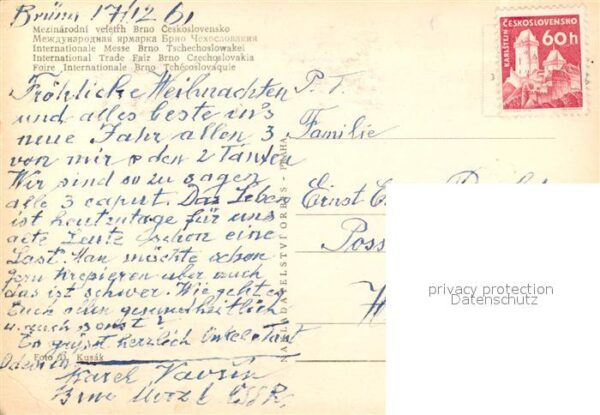 Brünn 17/12 61
Mezinárodní veletrh Brno Československo
Международная ярмарка Брно Чехословакия
Internationale Messe Brno Tschechoslowakei
International Trade Fair Brno Czechoslovakia
Foire Internationale Brno Tchécoslovaquie
Fröhliche Weihnachten
und alles beste in's
neue Jahr allen 3
von mir & den 2 Tanten
Wir sind so zu sagen
alle 3 caput. Das Leben
ist heutzutage für uns
alte Leute schon eine
Last. Man möchte schon
gern krepieren aber auch
das ist schwer. Wie geht es
Euch allen gesundheitlich
u. auch sonst?
Es grüsst herzlich Onkel & Tant
Foto Kusák
Karel
Brno ČSSR
NAKLADATELSTVÍ ORBIS - PRAHA
ČESKOSLOVENSKO
KARLŠTEJN
60h
P. T.
Familie
Ernst
Poss
privacy protection
Datenschutz